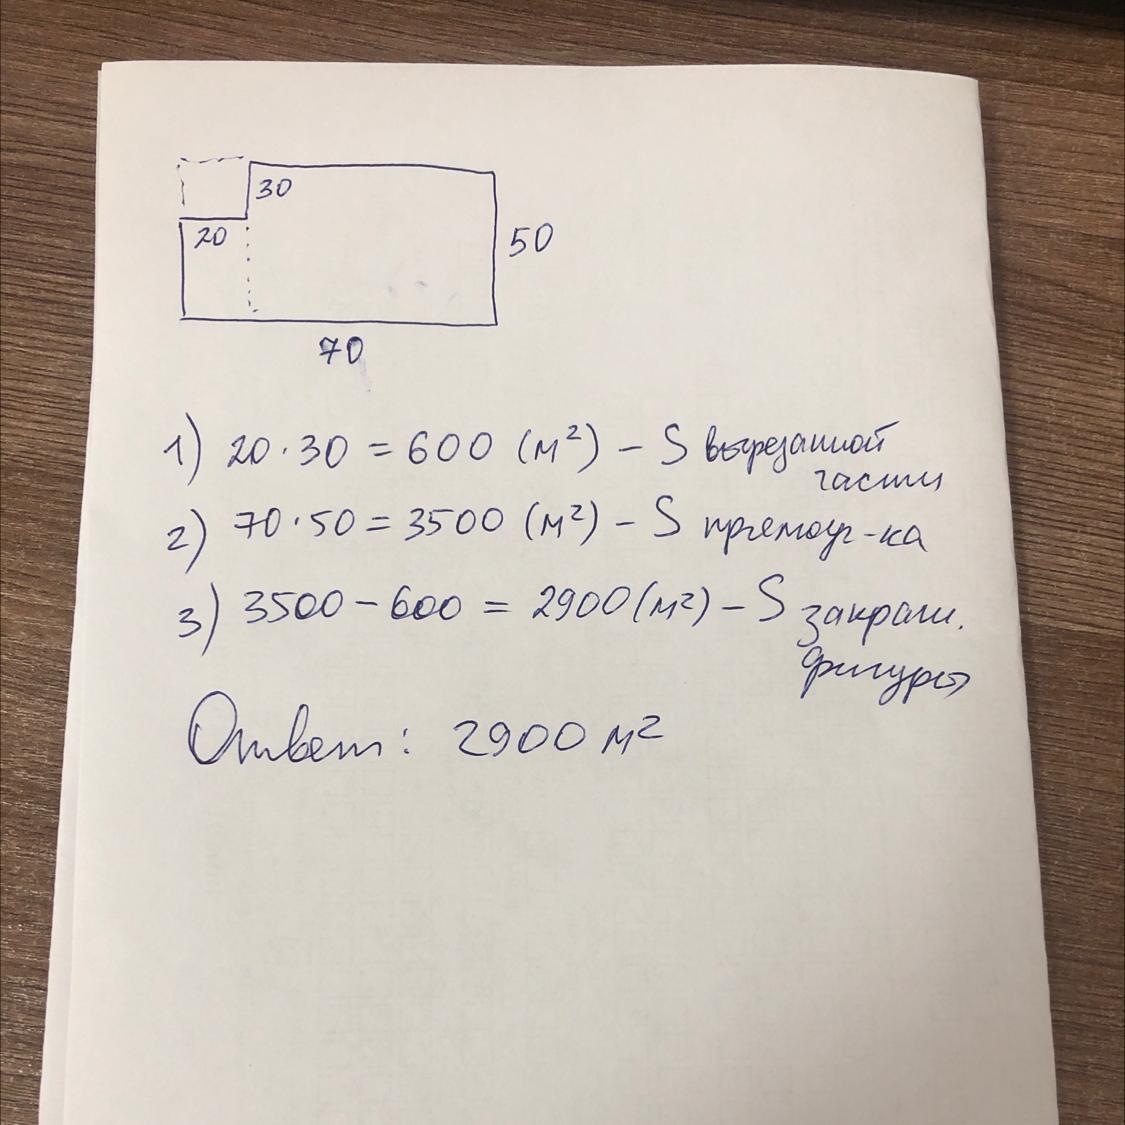 30
20
50
70
1) 20·30 = 600 (м²) – S вырезанной
части
2) 70·50 = 3500 (м²) – S прямоуг-ка
3) 3500 – 600 = 2900 (м²) – S закраш.
фигуры
Ответ: 2900 м²